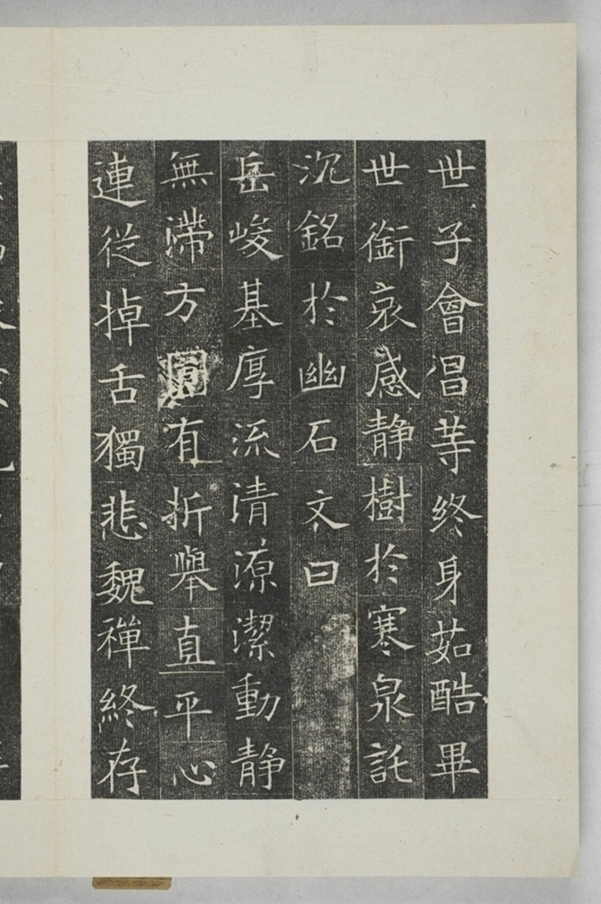 世子會昌等終身茹酷畢
世銜哀感静樹於寒泉託
沉銘於幽石文曰
岳峻基厚流清源潔動静
無滯方圓有折舉直平心
連從掉舌獨悲魏禪終存